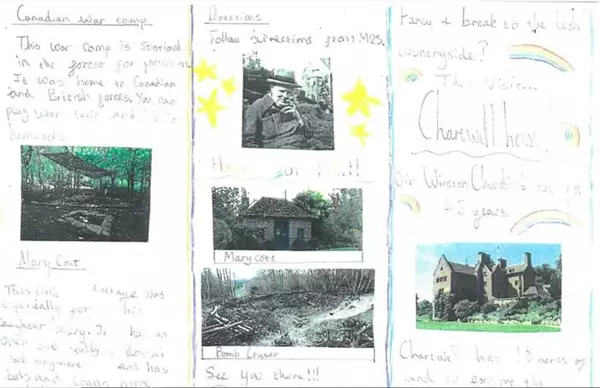 Canadian war camp.
This war camp is
in the forest for
It was home to Canadian
and British forces. You can
play war and
hammocks
Mary Cot
This little cottage was
especially for his
daughter Mary. It has an
oven
anymore and has
beds and loads more
Directions
Follow directions from M25.
Mary cote
Bomb Crater
See you there!!!
Fancy a break to the lush
countryside?
Then visit...
Chartwell house!
Sir Winston
42 years.
Chartwell has 18 acres of
land to explore